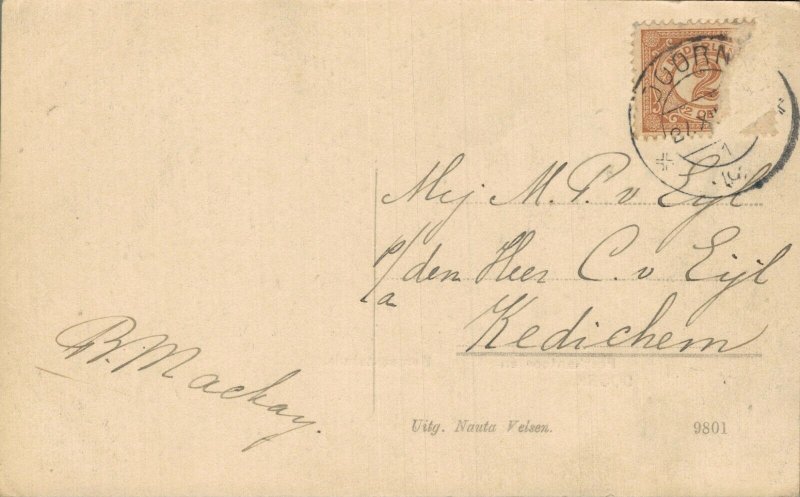 DOORN
2
Mej M. P. v Eijl
p/a den Heer C. v Eijl
Kedichem
B. Mackay.
Uitg. Nauta Velsen.
9801